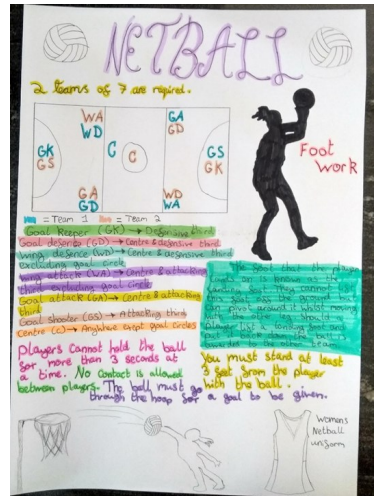 NETBALL
2 teams of 7 are required.
WA
WD
GA
GD
GK
GS
C
C
GS
GK
GA
GD
WD
WA
Foot
Work
= Team 1 = Team 2
Goal Keeper (GK) → Defensive third
Goal defence (GD) → Centre & defensive third
Wing defence (WD) → Centre & defensive third
excluding goal circle
Wing attack (WA) → Centre & attacking
third excluding goal circle
Goal attack (GA) → Centre & attacking
third
Goal shooter (GS) → Attacking third
Centre (C) → Anywhere exept goal circles
The foot that the player
on is known as the
landing foot. They cannot
this foot off the ground but
can pivot around it whilst moving
leg about.
player lift a landing foot and
put it back down the
awarded to the other team.
Players cannot hold the ball
for more than 3 seconds at
a time. No contact is allowed
between players. The ball must go
through the hoop for a goal to be given.
You must stand at least
3 feet from the player
with the ball.
Womens
Netball
uniform